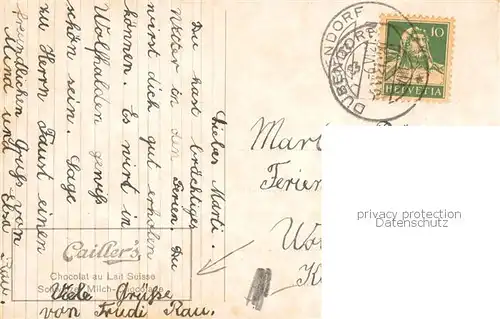 Lieber Marti.
Du hast brächtiges
Wetter in den Ferien. Du
wirst dich gut erholen
können. Es wirt in
Wolfhalden gewiss
schön sein. Sage
zu Herrn Faust einen
freundlichen Gruss von
Mina und Elsa Rau.
Viele Grüsse
von Friedi Rau.
Cailler's
Chocolat au Lait Suisse
Schweizer Milch-Chocolade
DÜBENDORF
10
HELVETIA
Marti
Ferien
privacy protection
Datenschutz